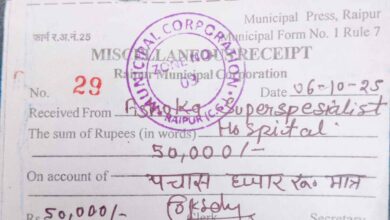 Municipal Press, Raipur
फार्म र.अ.नं.25 Municipal Form No. 1 Rule 7
MISCELLANEOUS RECEIPT
Raipur Municipal Corporation
No. 29 Date 06-10-25
Received From Ashoka Superspecialist
The sum of Rupees (in words) Hospital
50,000/-
On account of पचास हजार रू० मात्र
Rs 50,000/- Clerk Secretary
MUNICIPAL CORPORATION
ZONE NO
09
RAIPUR (C.G.)